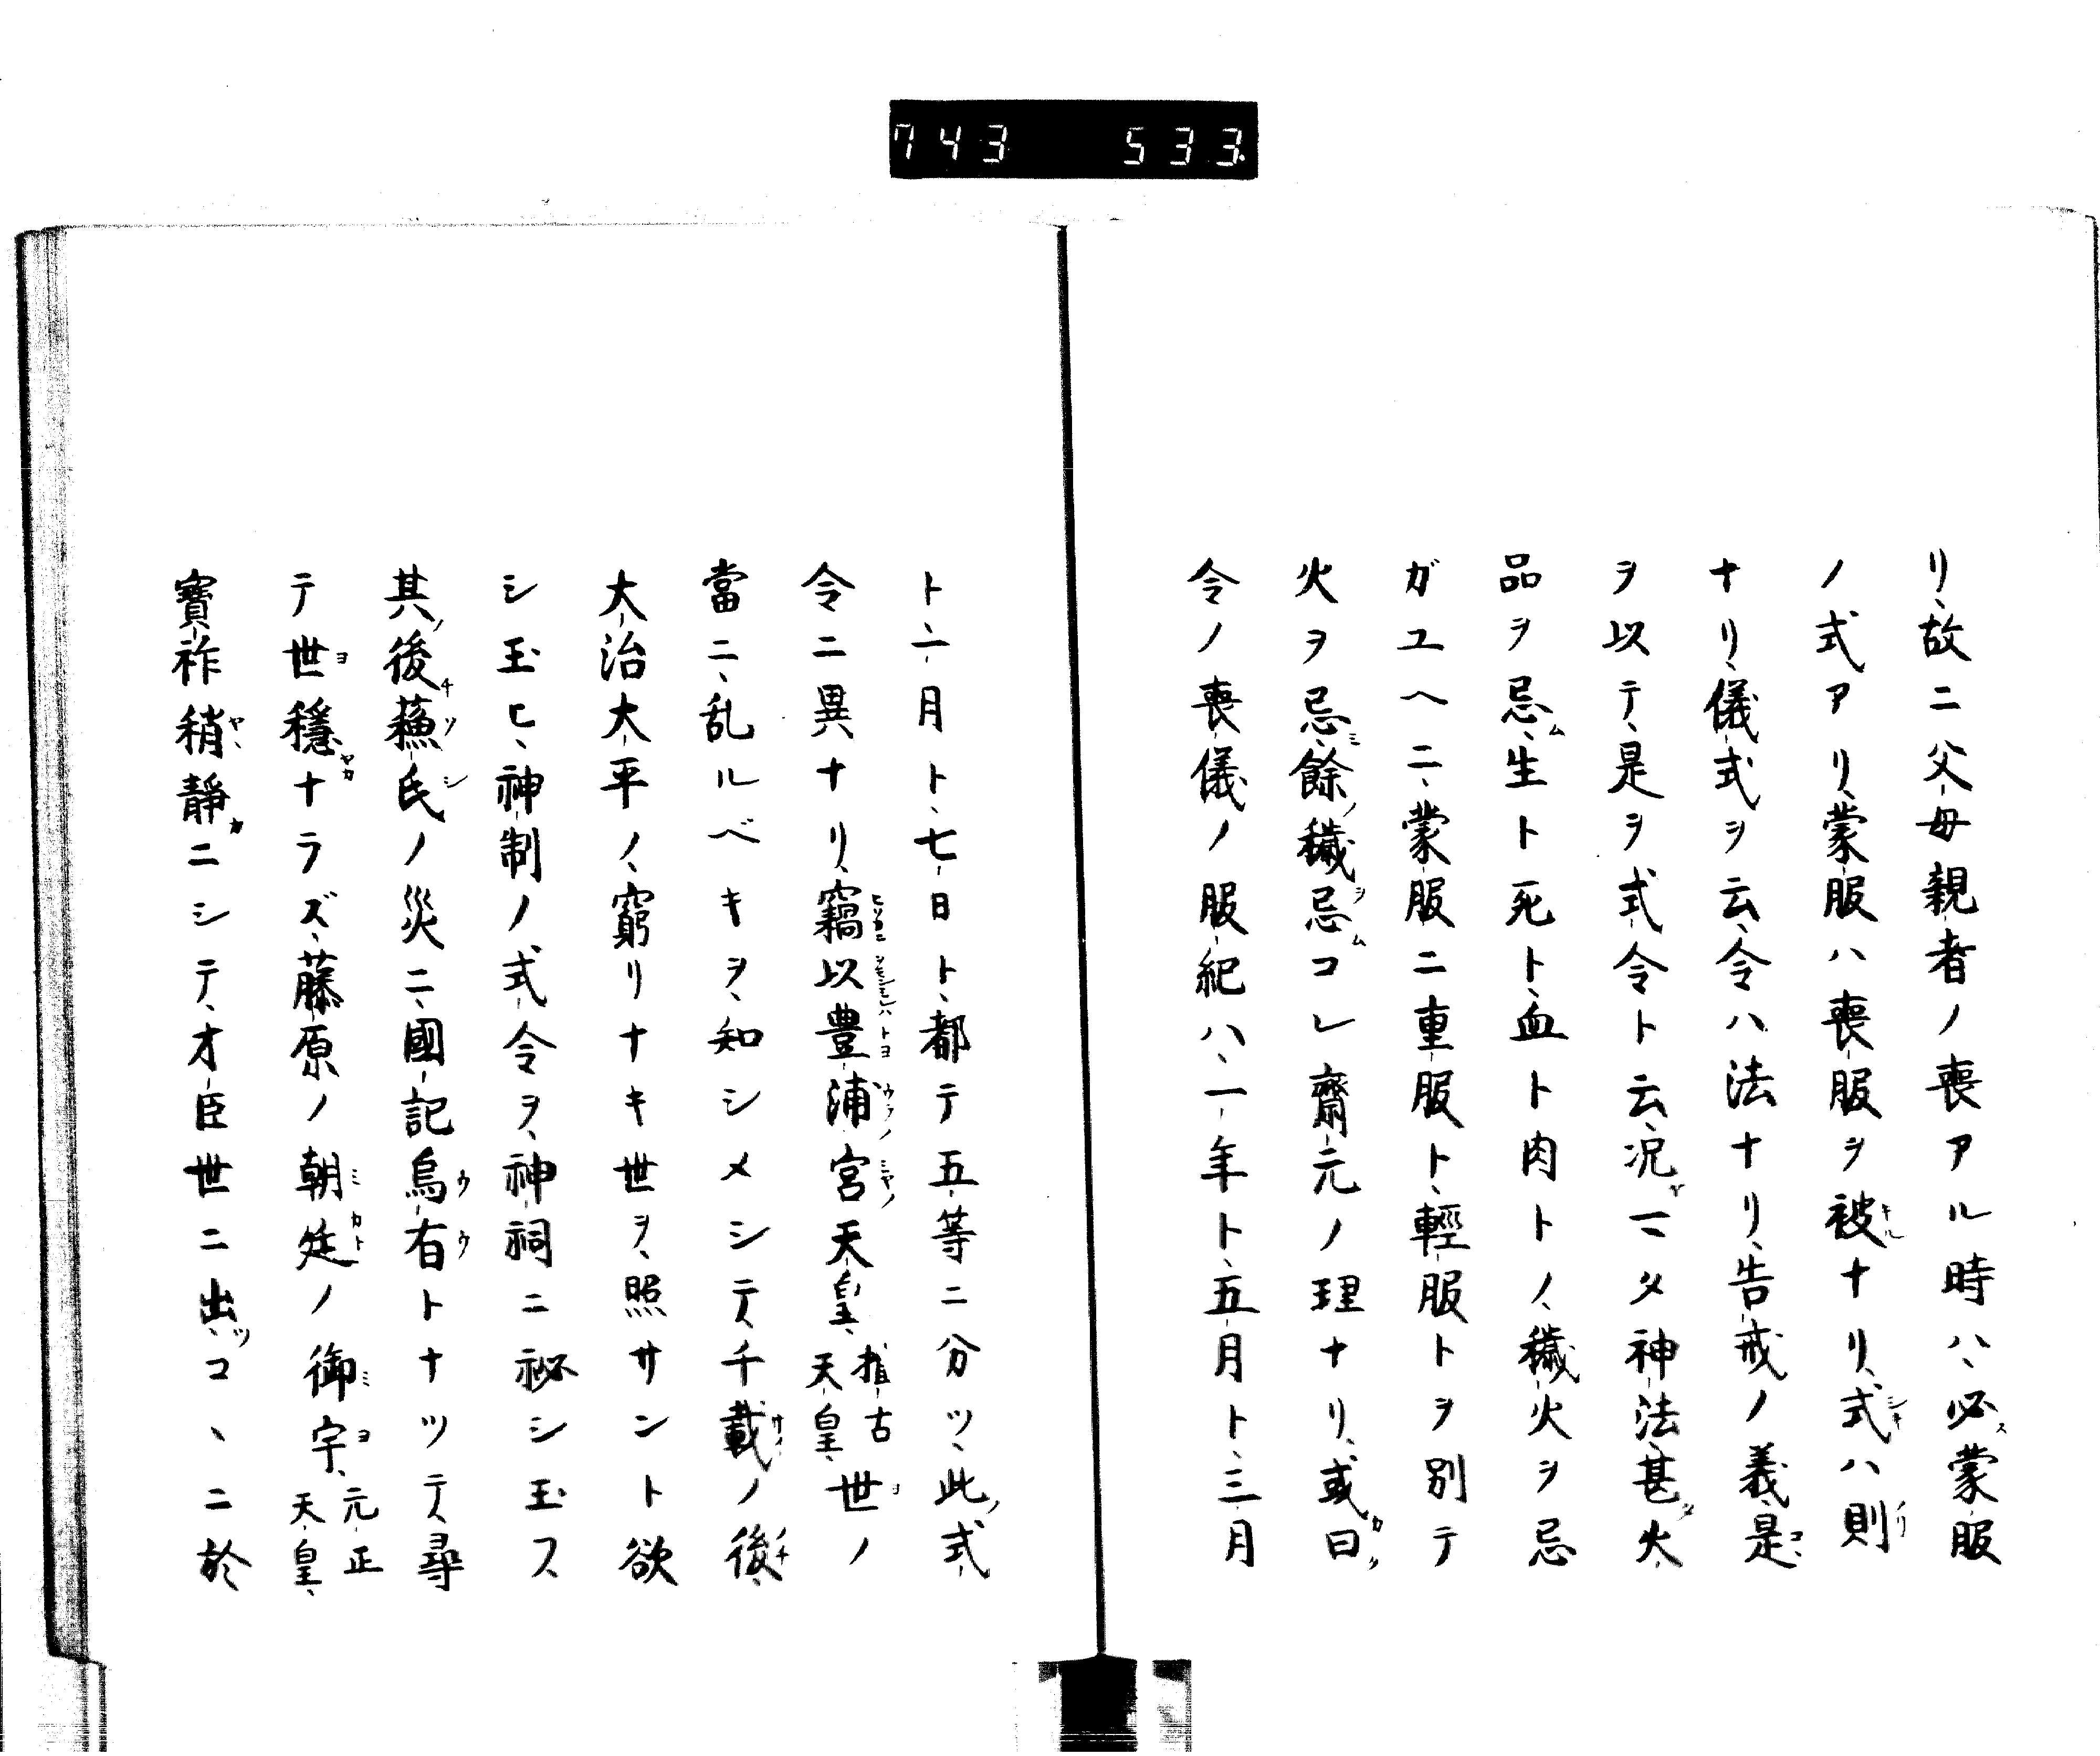 743 533
リ、故ニ父母親者ノ喪アル時ハ、必ス蒙服
ノ式アリ、蒙服ハ喪服ヲ被キルナリ、式シキハ則リ
ナリ、儀式ヲ云、令ハ法ナリ、告戒ノ義、是コヽ
ヲ以テ、是ヲ式令ト云、况ヤマタ神法、甚タ火
品ヲ忌ム、生ト死ト、血ト肉トノ、穢火ヲ忌
ガユヘニ、蒙服ニ重服ト、輕服トヲ別テ
火ヲ忌ミ、餘ノ穢ヲ忌ムコレ齋元ノ理ナリ、或曰
令ノ喪儀ノ服紀ハ、一年ト、五月ト、三月
ト、一月ト、七日ト、都テ五等ニ分ツ、此ノ式
令ニ異ナリ、竊ヒソカニ以豊トヨ浦ウラノ宮ミヤノ天皇、推古天皇、世ヨノ
當ニ、乱ルベキヲ、知シメシテ、千載サイノ後チ、
大治大平ノ、窮リナキ世ヲ、照サント欲
シ玉ヒ、神制ノ式令ヲ、神祠ニ祕シ玉フ
其ノ後チ蘓ソ氏シノ災ニ、國記烏ウ有ウトナツテ、尋
テ世ヨ穩ヤカナラズ、藤原ノ朝ミ廷カトノ御ミ宇ヨ、元正天皇、
寶祚稍ヤヽ靜カニシテ、才臣世ニ出ツ、コヽニ於